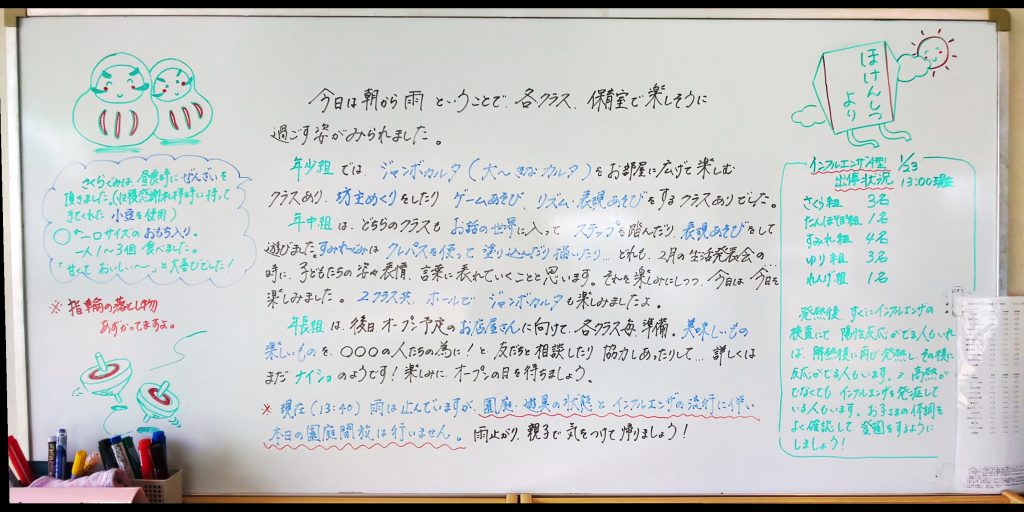 今日は朝から雨ということで、各クラス、保育室で楽しそうに
過ごす姿がみられました。
年少組では、ジャンボカルタ(大〜きなカルタ)をお部屋に広げて楽しむ
クラスあり、坊主めくりをしたり ゲームあそび、リズム・表現あそびをするクラスありでした。
年中組は、どちらのクラスも お話の世界に入って ステップを踏んだり、表現あそびをして
遊びました。すみれぐみは クレパスを使って 塗り込んだり 描いたり… どれも、2月の生活発表会の
時に、子どもたちの姿や表情、言葉に表れていくことと思います。それを楽しみにしつつ、今日は今日を
楽しみました。2クラス共、ホールで ジャンボカルタも楽しみましたよ。
年長組は、後日オープン予定のお店屋さんに向けて、各クラス毎、準備。美味しいもの
楽しいものを、〇〇〇の人たちの為に!と 友だちと相談したり 協力しあったりして… 詳しくは
まだナイショのようです!楽しみに オープンの日を待ちましょう。
※ 現在(13:40)雨は止んでいますが、園庭・遊具の状態とインフルエンザの流行に伴い
本日の園庭開放は行いません。雨止がり、親子で気をつけて帰りましょう!
さくらぐみは、昼食時にぜんざいを
頂きました。(収穫感謝礼拝時に持って
きてくれた 小豆を使用)
〇←一口サイズのおもち入り。
一人1〜3個 食べました。
「甘くて おいしい〜」と大喜びでした!
※ 指輪の落とし物
あずかってますよ。
ほけんしつ
より
インフルエンザA型 1/23
出停状況 13:00現在
さくら組 3名
たんぽぽ組 1名
すみれ組 4名
ゆり組 3名
れんげ組 1名
発熱後、すぐにインフルエンザの
検査にて 陽性反応がでる人もいれ
ば、解熱後に再び発熱し、その後に
反応がでる人もいます。又、高熱が
でなくても インフルエンザを発症して
いる人もいます。お子さまの体調を
よく確認して 登園をするように
しましょう!